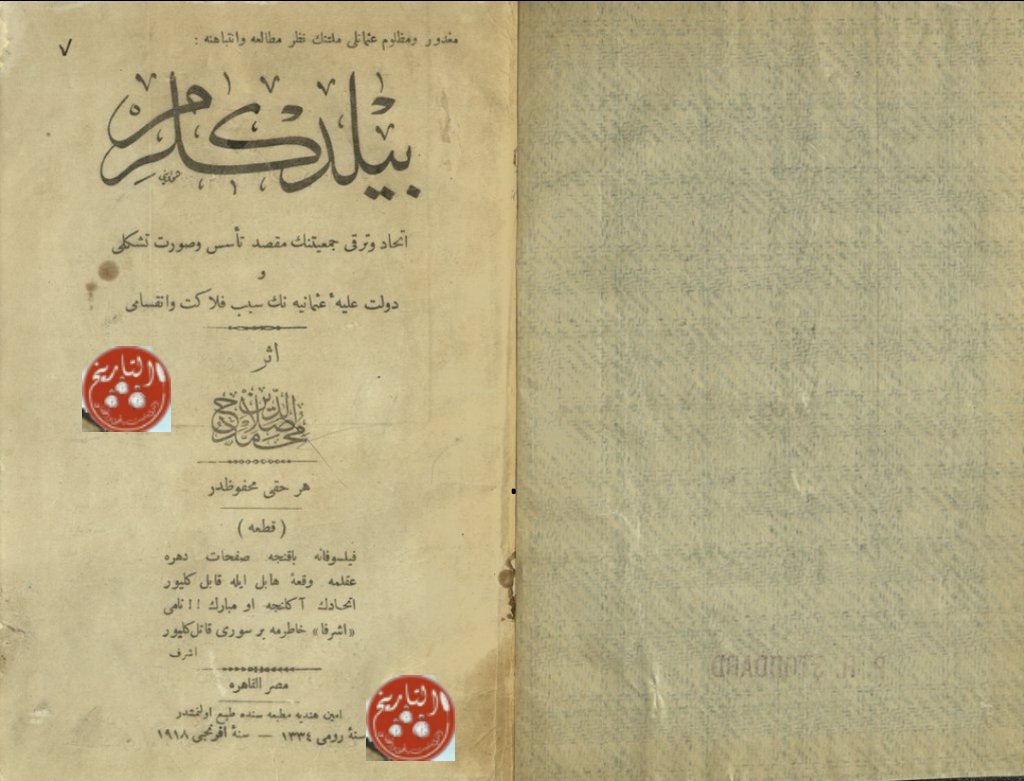 مغدور ومظلوم عثمانلی ملتنك نظر مطالعه وانتباهنه :
بیلدكلرم
اتحاد وترقی جمعیتنك مقصد تأسس وصورت تشكلی
و
دولت علیهٔ عثمانیه نك سبب فلاكت وانقسامی
اثر
هر حقی محفوظدر
( قطعه )
فیلسوفانه باقنجه صفحات دهره
عقلمه وقعهٔ هابل ایله قابل كلیور
اتحادك آكلنجه او مبارك !! نامی
«اشرفا» خاطرمه بر سوری قاتل كلیور
اشرف
مصر القاهره
امین هندیه مطبعه سنده طبع اولنمشدر
سنهٔ رومی ١٣٣٤ — سنهٔ افرنجی ١٩١٨
التاريخ
التاريخ
P. H. STODDARD